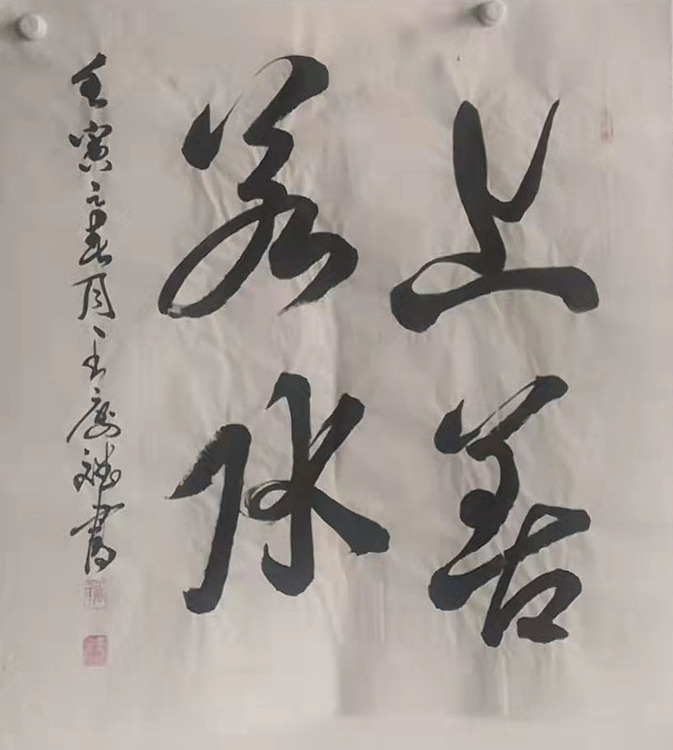 上善
若水
壬寅之春月王庆斌書